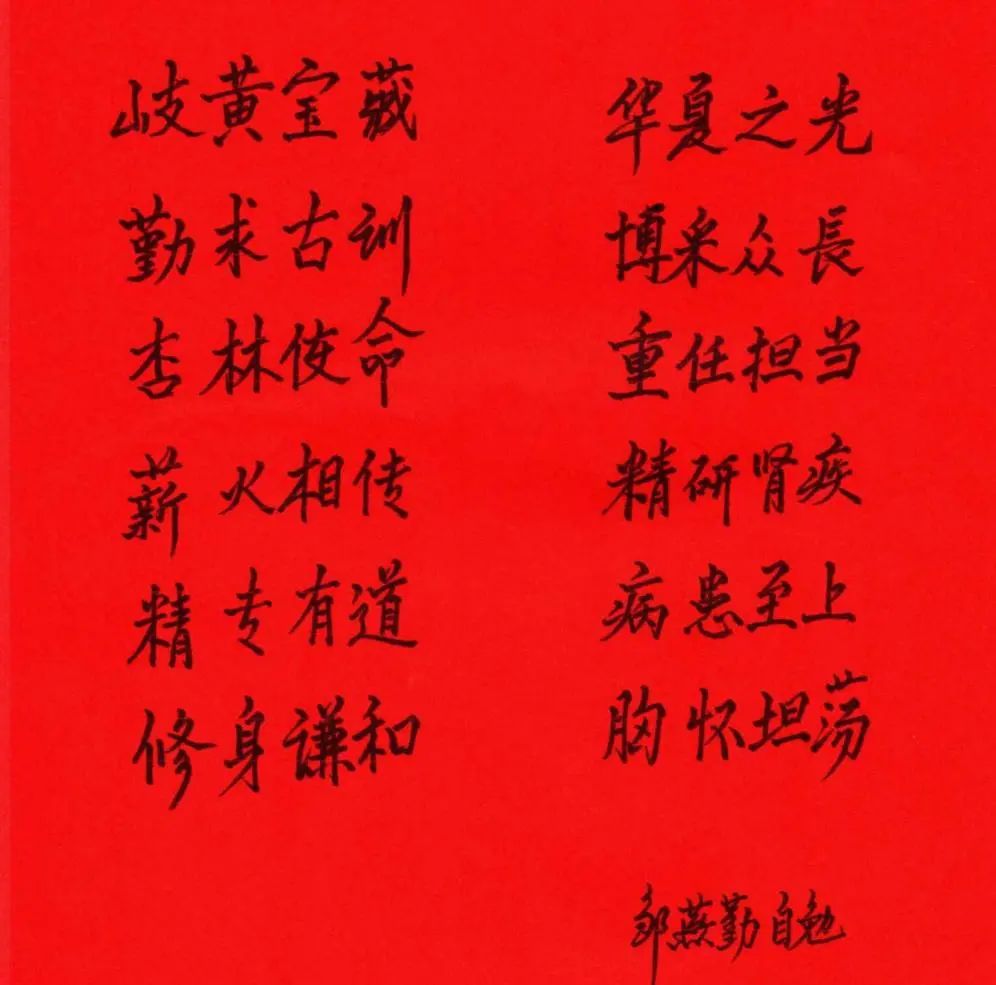 岐黄宝藏 华夏之光
勤求古训 博采众長
杏林使命 重任担当
薪火相传 精研肾疾
精专有道 病患至上
修身谦和 胸怀坦荡
邹燕勤自勉